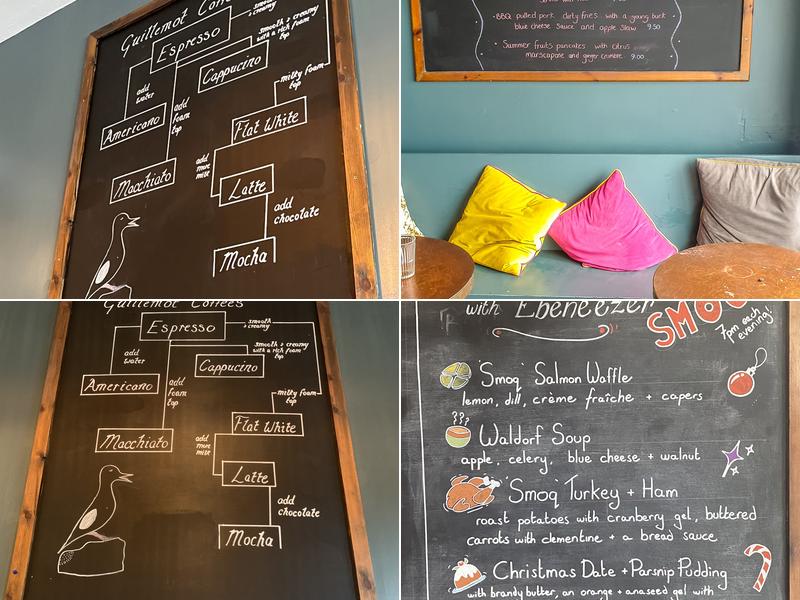 Guillemot Coffees
Espresso
smooth + creamy
smooth + creamy
with a rich foam
top
Cappucino
add
water
add
foam
top
milky foam
top
Americano
Flat White
Macchiato
add
more
milk
Latte
add
chocolate
Mocha
• BBQ pulled pork dirty fries with a
blue cheese sauce and apple slaw 9.50
• Summer fruits pancakes with citrus
marscapone and ginger crumble 9.00
Guillemot Coffees
Espresso
smooth
+ creamy
smooth + creamy
with a rich foam
top
add
water
Cappucino
Americano
add
foam
top
milky foam
top
Flat White
Macchiato
add
more
milk
Latte
add
chocolate
Mocha
with Ebeneezer
SMOQ
7pm each
evening!
'Smoq' Salmon Waffle
lemon, dill, crème fraîche + capers
Waldorf Soup
apple, celery, blue cheese + walnut
'Smoq' Turkey + Ham
roast potatoes with cranberry gel, buttered
carrots with clementine + a bread sauce
Christmas Date + Parsnip Pudding
with brandy butter, an orange + anaseed gel with